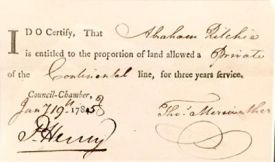 I DO Certify, That Abraham
is entitled to the proportion of land allowed a Private
of the Continental line, for three years service.
Council-Chamber,
Jany 19th 1785
Thos. Meriwether
P. Henry